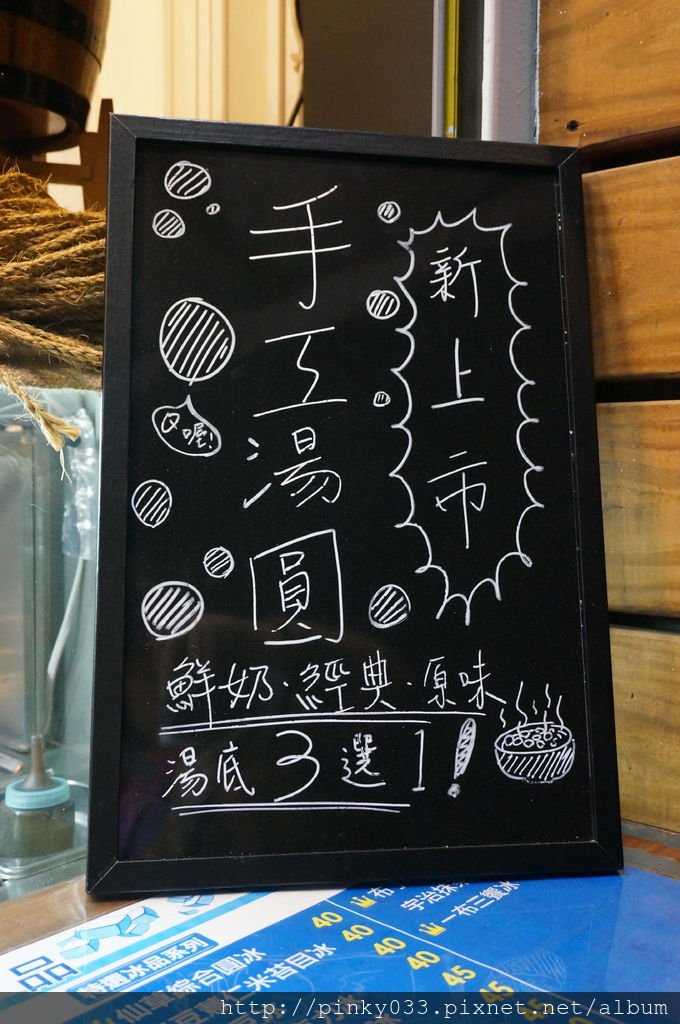 新上市
手工湯圓
QQ喔!
鮮奶·經典·原味
湯底3選1!
品
特選冰品系列
仙草綜合圓冰
40
米苔目冰
40
40
40
45
45
宇治抹
一布三饗冰
http://pinky033.pixnet.net/album